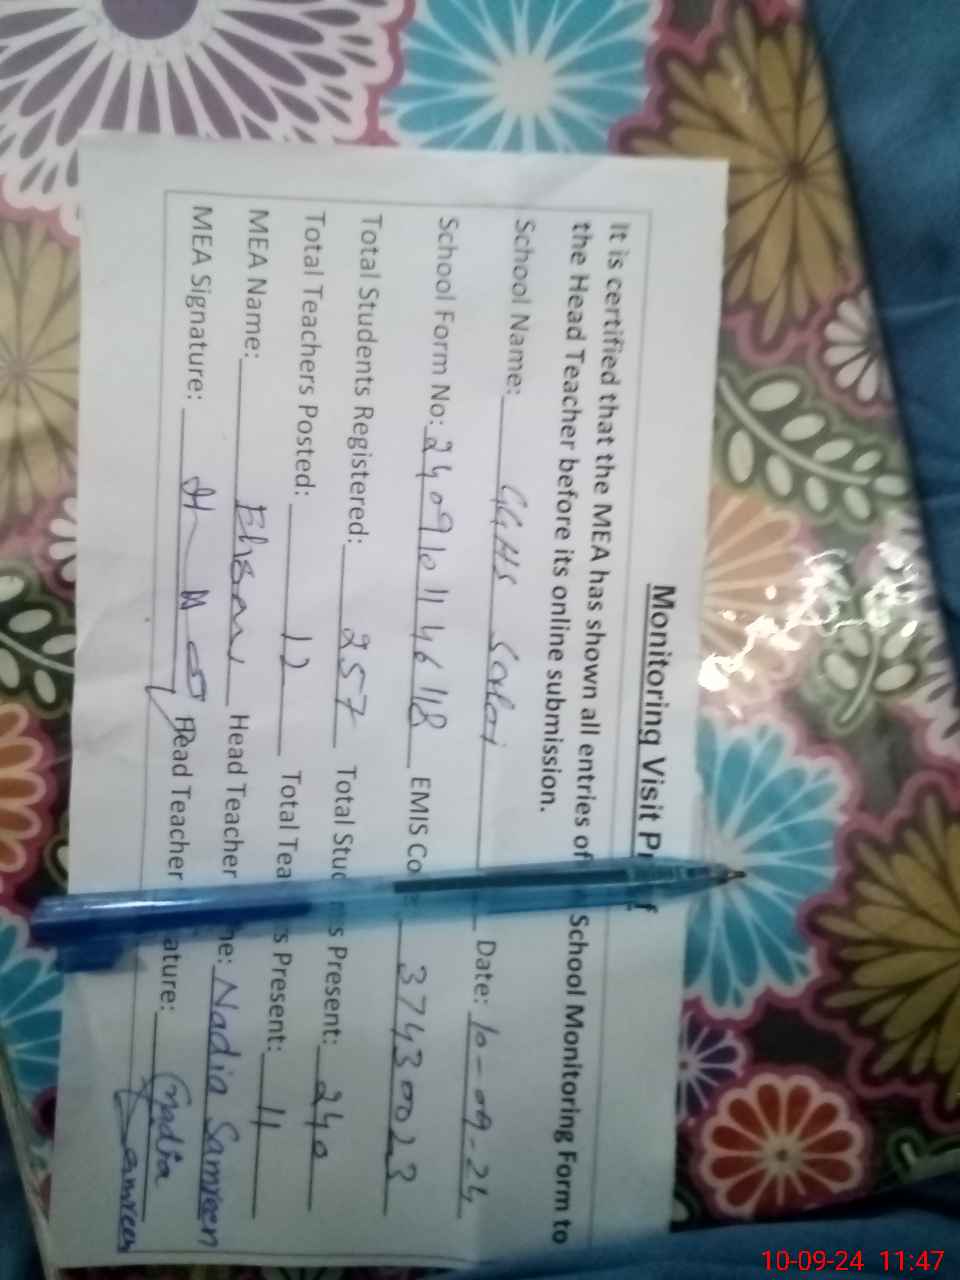 Monitoring Visit Pr f
It is certified that the MEA has shown all entries of School Monitoring Form to
the Head Teacher before its online submission.
School Name: GGHS Date: 10-09-24
School Form No: EMIS Co 37430023
Total Students Registered: 257 Total Stud s Present: 240
Total Teachers Posted: 12 Total Tea s Present: 11
MEA Name: Head Teacher e: Nadia Samreen
MEA Signature: Head Teacher ature: Nadia
Samreen
10-09-24 11:47